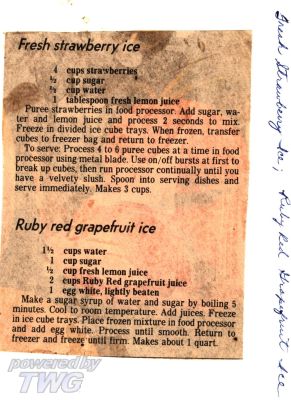 Fresh strawberry ice
4 cups strawberries
½ cup sugar
½ cup water
1 tablespoon fresh lemon juice
Puree strawberries in food processor. Add sugar, wa-
ter and lemon juice and process 2 seconds to mix.
Freeze in divided ice cube trays. When frozen, transfer
cubes to freezer bag and return to freezer.
To serve: Process 4 to 6 puree cubes at a time in food
processor using metal blade. Use on/off bursts at first to
break up cubes, then run processor continually until you
have a velvety slush. Spoon into serving dishes and
serve immediately. Makes 3 cups.
Ruby red grapefruit ice
1½ cups water
1 cup sugar
½ cup fresh lemon juice
2 cups Ruby Red grapefruit juice
1 egg white, lightly beaten
Make a sugar syrup of water and sugar by boiling 5
minutes. Cool to room temperature. Add juices. Freeze
in ice cube trays. Place frozen mixture in food processor
and add egg white. Process until smooth. Return to
freezer and freeze until firm. Makes about 1 quart.
Fresh Strawberry Ice; Ruby Red Grapefruit Ice
powered by
TWG